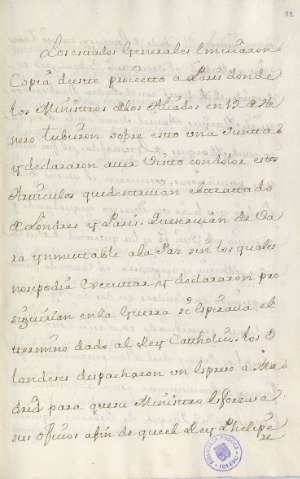 Los estados Generales embiaron
Copia de este proiecto a Paris donde
los Ministros de los Aliados en 15 de He
nero tubieron sobre esto una Junta
y declararon aver visto con dolor estos
Articulos que destruian el tratado
de Londres y Paris, que servian de Va
sa ynmutable a la Paz sin los quales
no se podia executar, y declararon pro
siguirian en la Guerra si espirava el
termino dado al Rey Catholico. los O
landeses despacharon un expreso a Ma
drid para que su Ministro esforzasse
sus oficios afin de que el Rey Phelipe